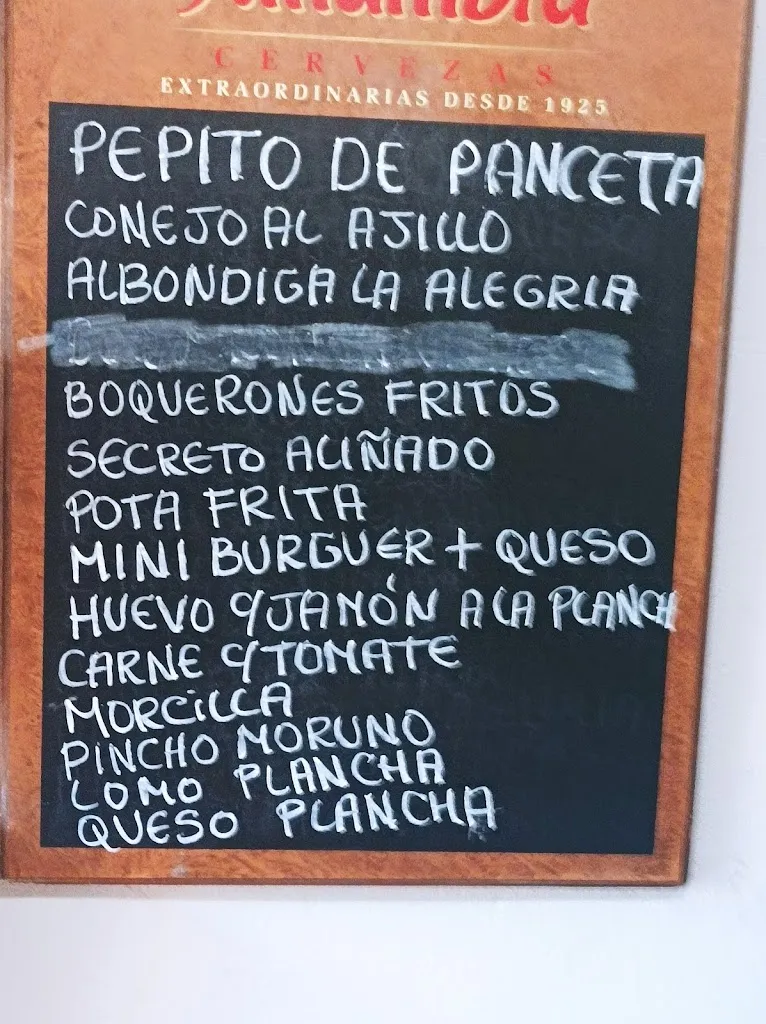 Alhambra
CERVEZAS
EXTRAORDINARIAS DESDE 1925
PEPITO DE PANCETA
CONEJO AL AJILLO
ALBONDIGA LA ALEGRIA
BOQUERONES FRITOS
SECRETO ALIÑADO
POTA FRITA
MINI BURGUER + QUESO
HUEVO C/JAMÓN A LA PLANCH
CARNE C/TOMATE
MORCILLA
PINCHO MORUNO
LOMO PLANCHA
QUESO PLANCHA